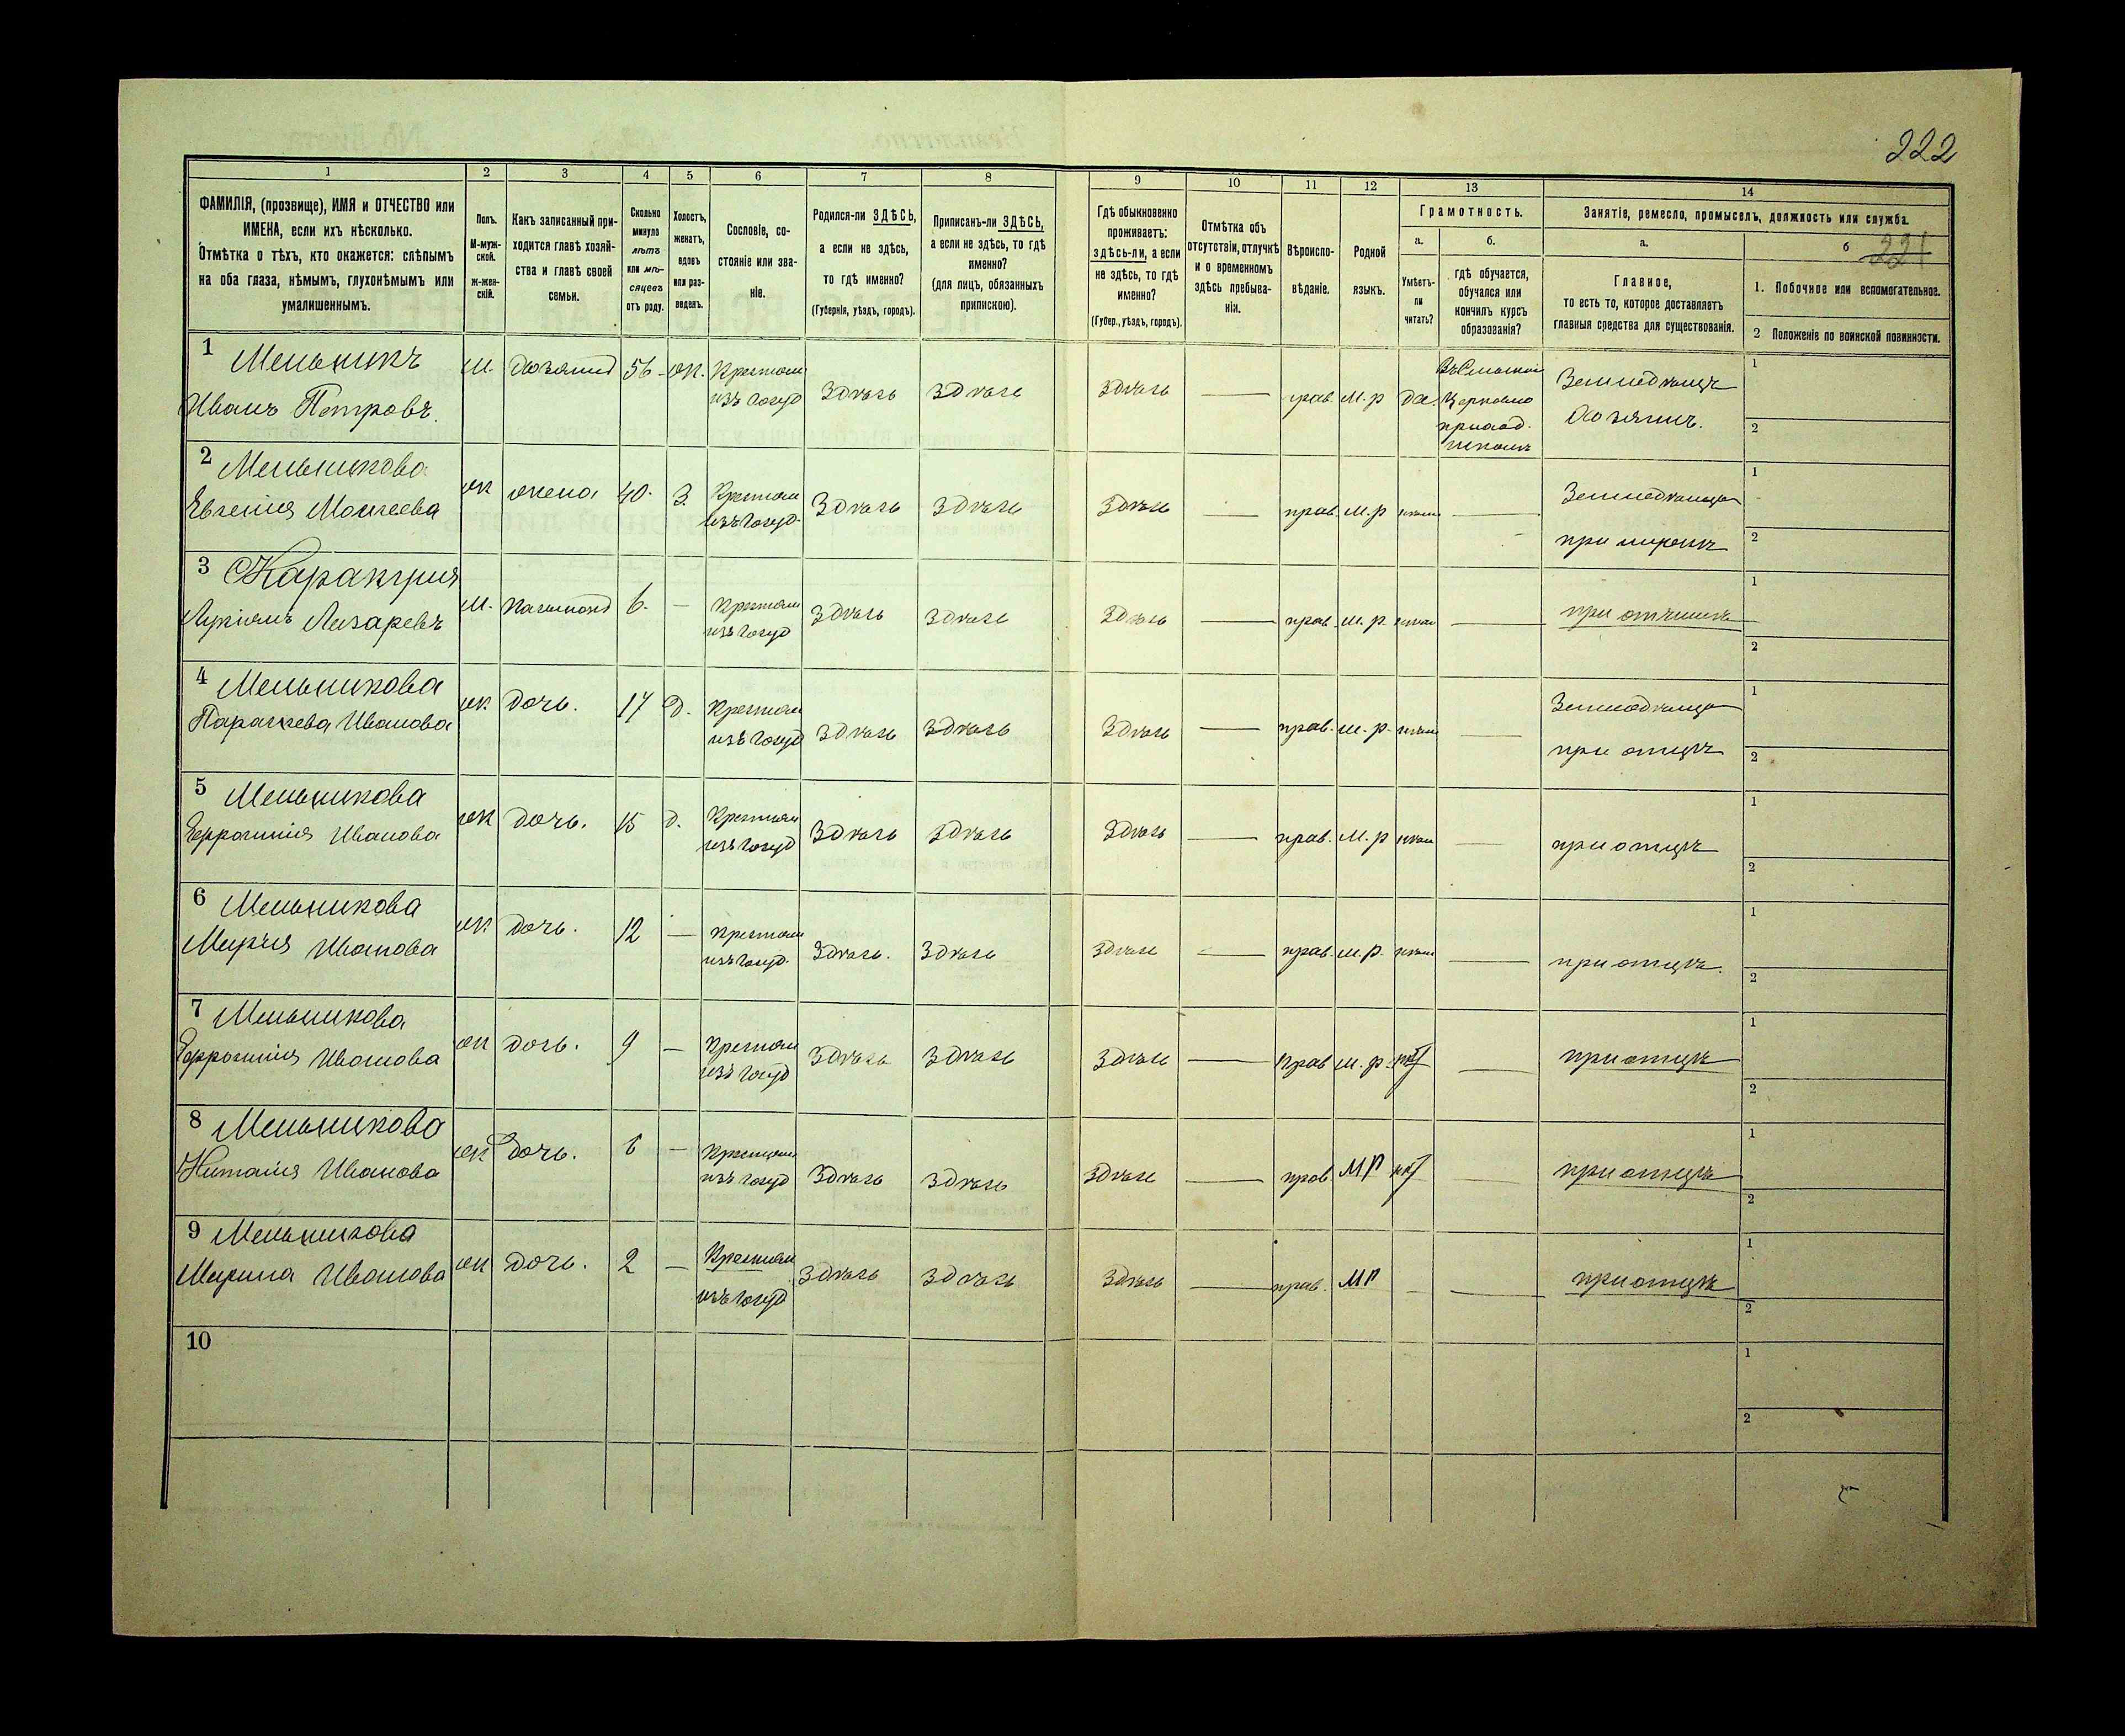 222
1 2 3 4 5 6 7 8 9 10 11 12 13 14
ФАМИЛІЯ, (прозвище), ИМЯ и ОТЧЕСТВО или
ИМЕНА, если ихъ нѣсколько.
Отмѣтка о тѣхъ, кто окажется: слѣпымъ
на оба глаза, нѣмымъ, глухонѣмымъ или
умалишеннымъ.
Полъ.
М-муж-
ской.
Ж-жен-
скій.
Какъ записанный при-
ходится главѣ хозяй-
ства и главѣ своей
семьи.
Сколько
минуло
лѣтъ
или мѣ-
сяцевъ
отъ роду.
Холостъ,
женатъ,
вдовъ
или раз-
веденъ.
Сословіе, со-
стояніе или зва-
ніе.
Родился-ли ЗДѢСЬ,
а если не здѣсь,
то гдѣ именно?
(Губернія, уѣздъ, городъ).
Приписанъ-ли ЗДѢСЬ,
а если не здѣсь, то гдѣ
именно?
(для лицъ, обязанныхъ
припискою).
Гдѣ обыкновенно
проживаетъ:
здѣсь-ли, а если
не здѣсь, то гдѣ
именно?
(Губер., уѣздъ, городъ).
Отмѣтка объ
отсутствіи, отлучкѣ
и о временномъ
здѣсь пребыва-
ніи.
Вѣроиспо-
вѣданіе.
Родной
языкъ.
Грамотность.
а.
Умѣетъ-
ли
читать?
б.
гдѣ обучается,
обучался или
кончилъ курсъ
образованія?
Занятіе, ремесло, промыселъ, должность или служба.
а.
Главное,
то есть то, которое доставляетъ
главныя средства для существованія.
б 221
1. Побочное или вспомогательное.
2 Положеніе по воинской повинности.
1 Мельникъ
Иванъ Петровъ.
м. хозяинъ 56 ж. Крестьян
изъ госуд здѣсь здѣсь здѣсь — прав. м. р да.
Церковно
приход.
Земледѣлецъ
хозяинъ.
1
2
2 Мельникова
Евгенія Моисеева
ж жена 40. З. Крестьян
изъ госуд. здѣсь здѣсь здѣсь — прав. м. р —
при мужѣ
1
2
3
Лукіанъ Лазаревъ
м. 6. — Крестьян
изъ госуд здѣсь здѣсь здѣсь — прав. м. р. —
при отчимѣ
1
2
4 Мельникова
Параскева Иванова
ж дочь. 17 д. Крестьян
изъ госуд здѣсь здѣсь здѣсь — прав. м. р. —
при отцѣ
1
2
5 Мельникова
Евфросинія Иванова
ж дочь. 15 д. Крестьян
изъ госуд здѣсь здѣсь здѣсь — прав. м. р —
при отцѣ
1
2
6 Мельникова
Марія Иванова
ж дочь. 12 — Крестьян
изъ госуд. здѣсь. здѣсь здѣсь — прав. м. р. —
при отцѣ.
1
2
7 Мельникова
Евфросинія Иванова
ж дочь. 9 — Крестьян
изъ госуд здѣсь здѣсь здѣсь — прав м. р. —
при отцѣ
1
2
8 Мельникова
Наталія Иванова
ж дочь. 6 — Крестьян
изъ госуд здѣсь здѣсь здѣсь — прав МР —
при отцѣ
1
2
9 Мельникова
Марина Иванова
ж дочь. 2 — Крестьян
изъ госуд здѣсь здѣсь здѣсь — прав. МР — —
при отцѣ
1
2
10
1
2